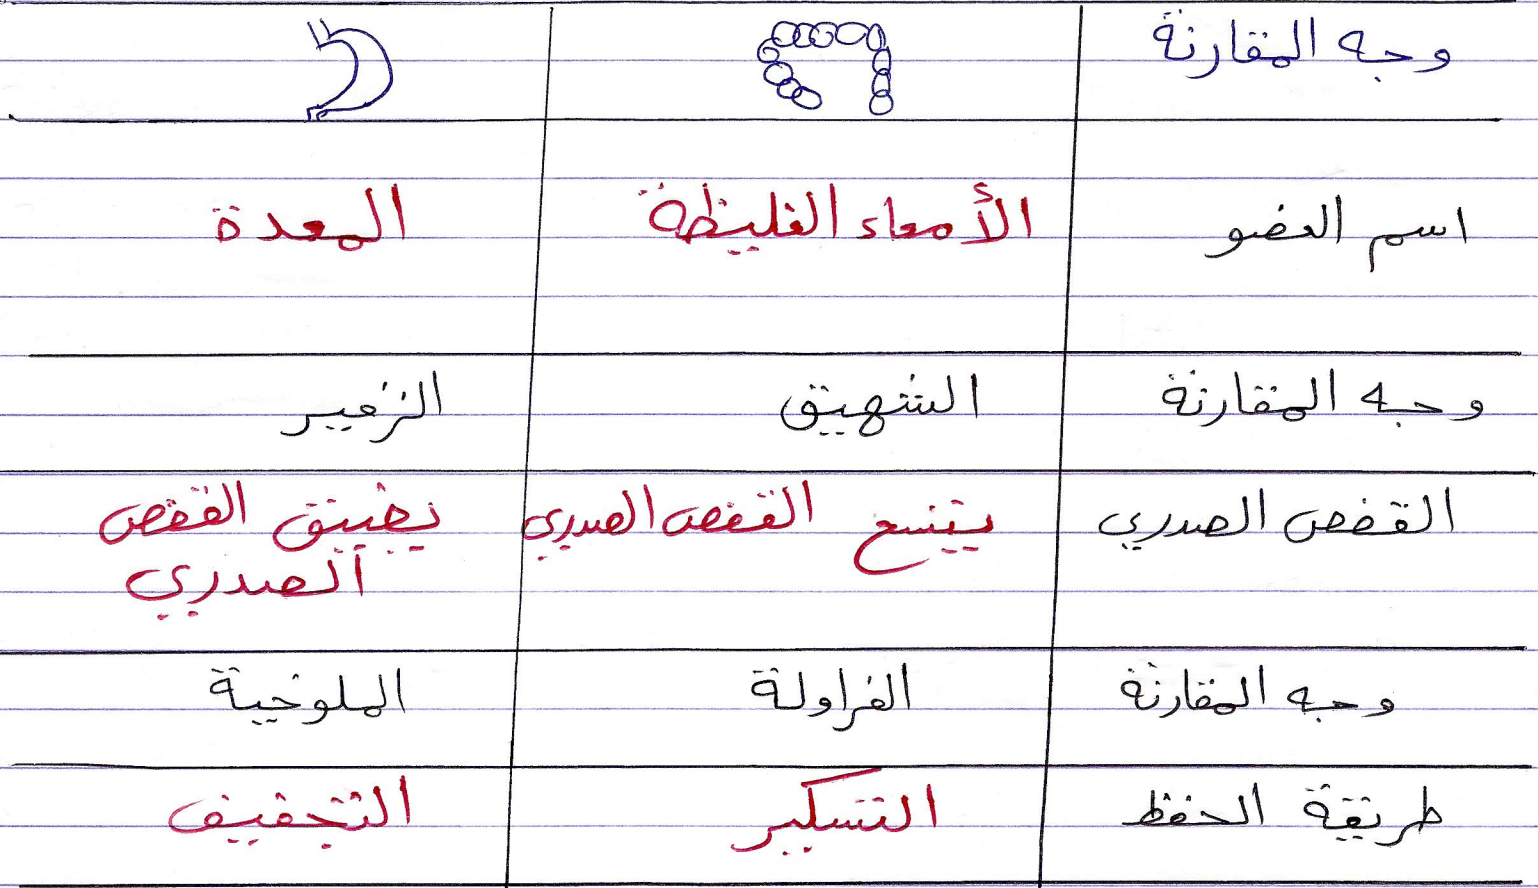 وجه المقارنة
اسم العضو الأمعاء الغليظة المعدة
وجه المقارنة الشهيق الزفير
القفص الصدري يتسع القفص الصدري يضيق القفص
الصدري
وجه المقارنة الفراولة الملوخية
طريقة الحفظ التسكير التجفيف